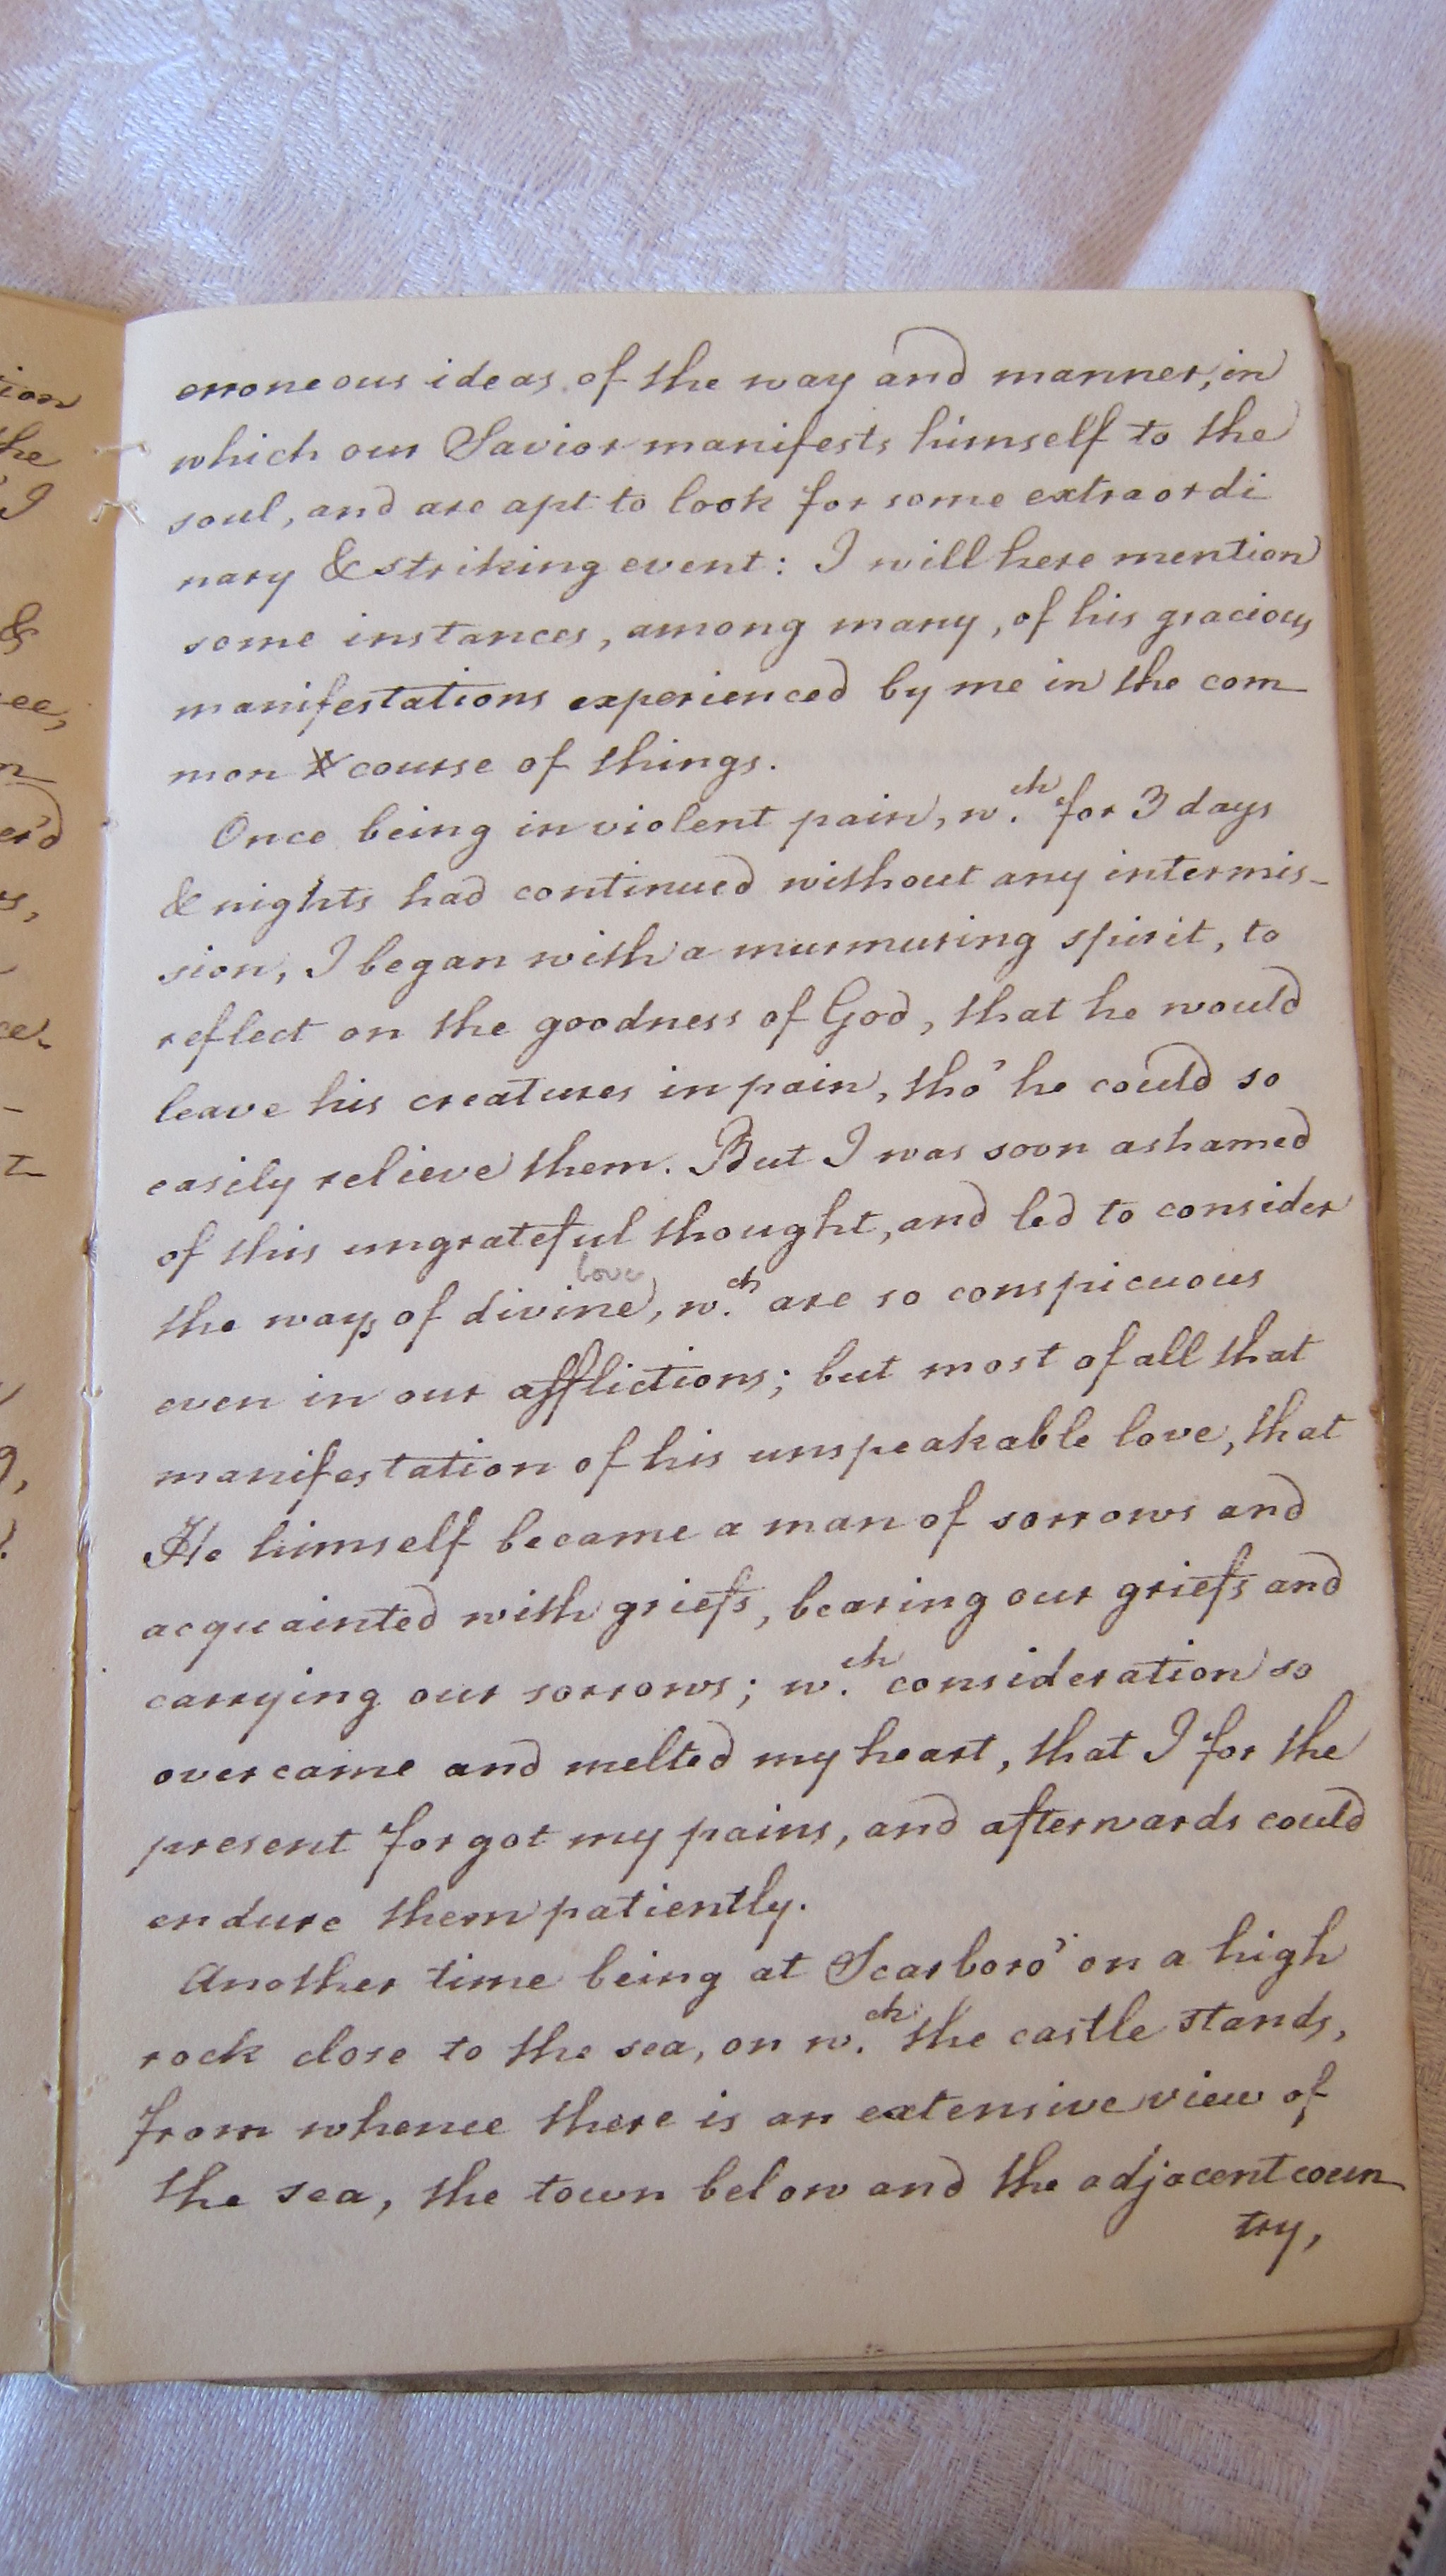 erroneous ideas of the way and manner, in
which our Savior manifests himself to the
soul, and are apt to look for some extraordi
nary & striking event: I will here mention
some instances, among many, of his gracious
manifestations experienced by me in the com-
mon course of things.
Once being in violent pain, w.ch for 3 days
& nights had continued without any intermis-
sion, I began with a murmuring spirit, to
reflect on the goodness of God, that he would
leave his creatures in pain, tho' he could so
easily relieve them. But I was soon ashamed
of this ungrateful thought, and led to consider
love
the ways of divine, w.ch are so conspicuous
even in our afflictions; but most of all that
manifestation of his unspeakable love, that
He himself became a man of sorrows and
acquainted with griefs, bearing our griefs and
carrying our sorrows; w.ch consideration so
overcame and melted my heart, that I for the
present forgot my pains, and afterwards could
endure them patiently.
Another time being at Scarboro' on a high
rock close to the sea, on w.ch the castle stands,
from whence there is an extensive view of
the sea, the town below and the adjacent coun-
try,